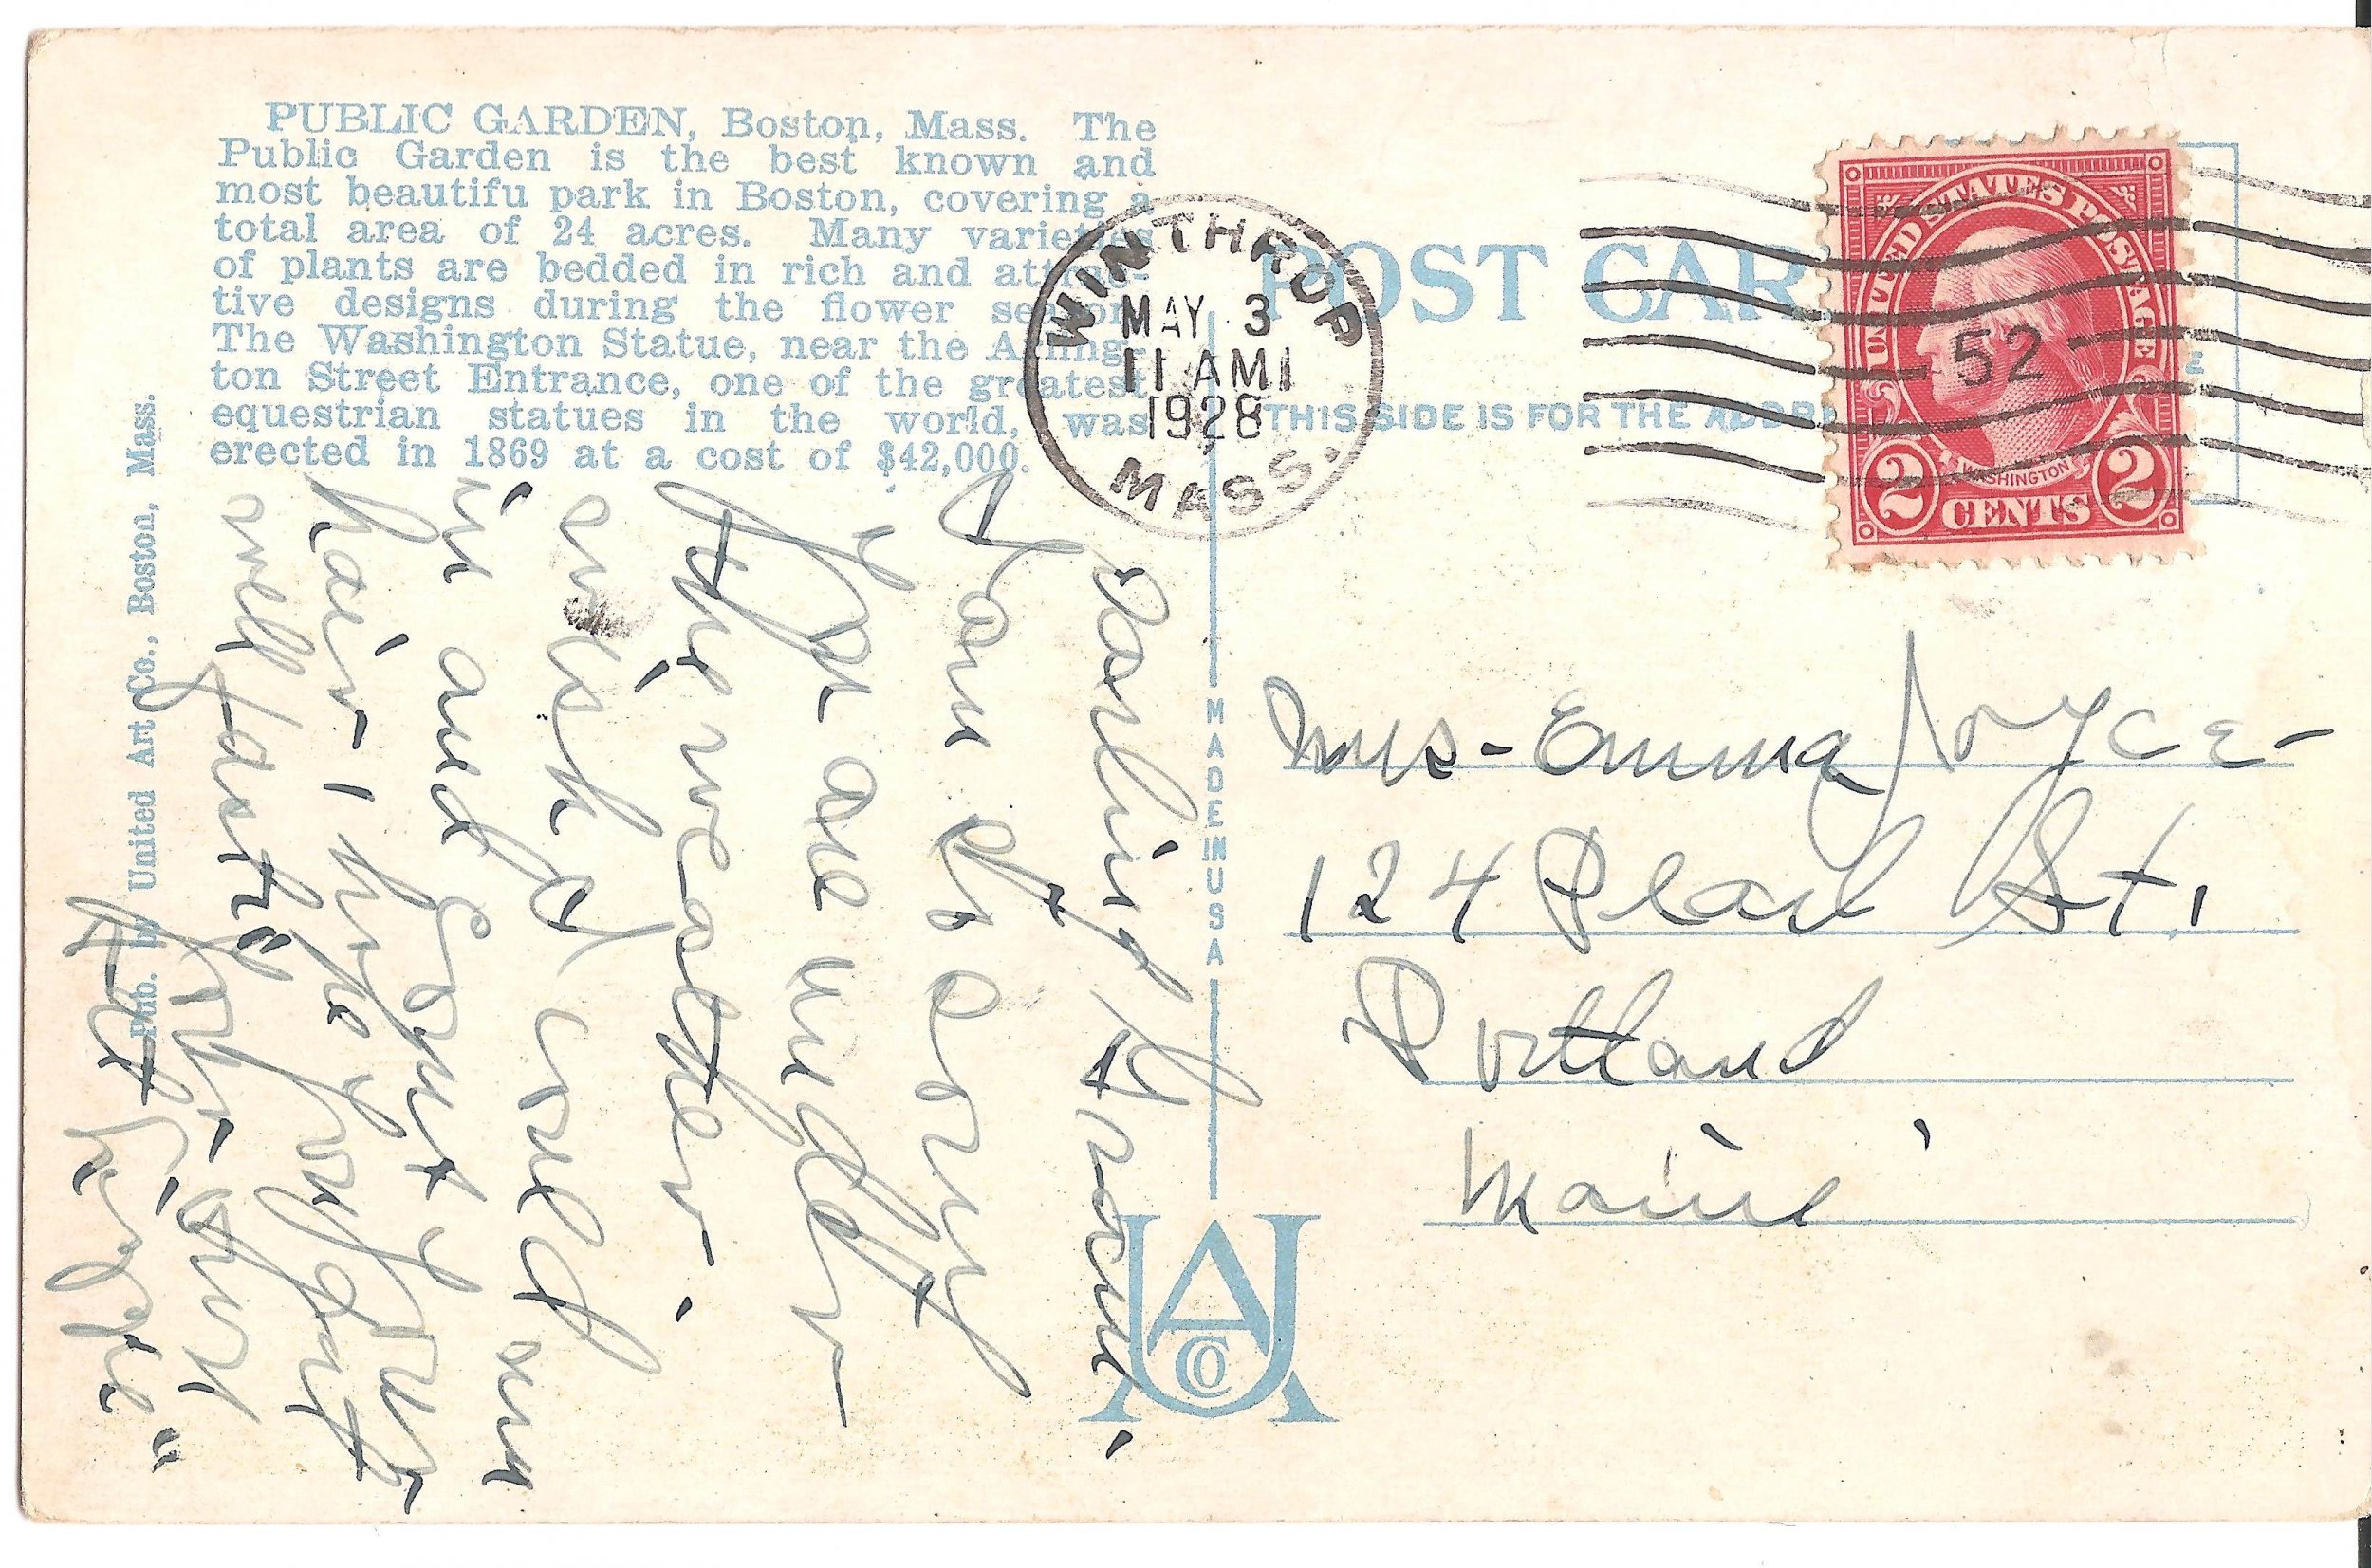 PUBLIC GARDEN, Boston, Mass. The
Public Garden is the best known and
most beautifu park in Boston, covering a
total area of 24 acres. Many varieties
of plants are bedded in rich and attrac-
tive designs during the flower season.
The Washington Statue, near the Arling-
ton Street Entrance, one of the greatest
equestrian statues in the world, was
erected in 1869 at a cost of $42,000.
Pub. by United Art Co., Boston, Mass.
Darling
sorry
are under
the weather.
wish I could
in and
hair - I hope
well fast
WINTHROP
MAY 3
11 AM
1928
MASS.
POST CAR
THIS SIDE IS FOR THE ADDRE
UNITED STATES POSTAGE
52
WASHINGTON
2 CENTS 2
MADE IN U S A
UACO
Mrs - Emma Joyce -
124 Pearl St.
Portland
Maine